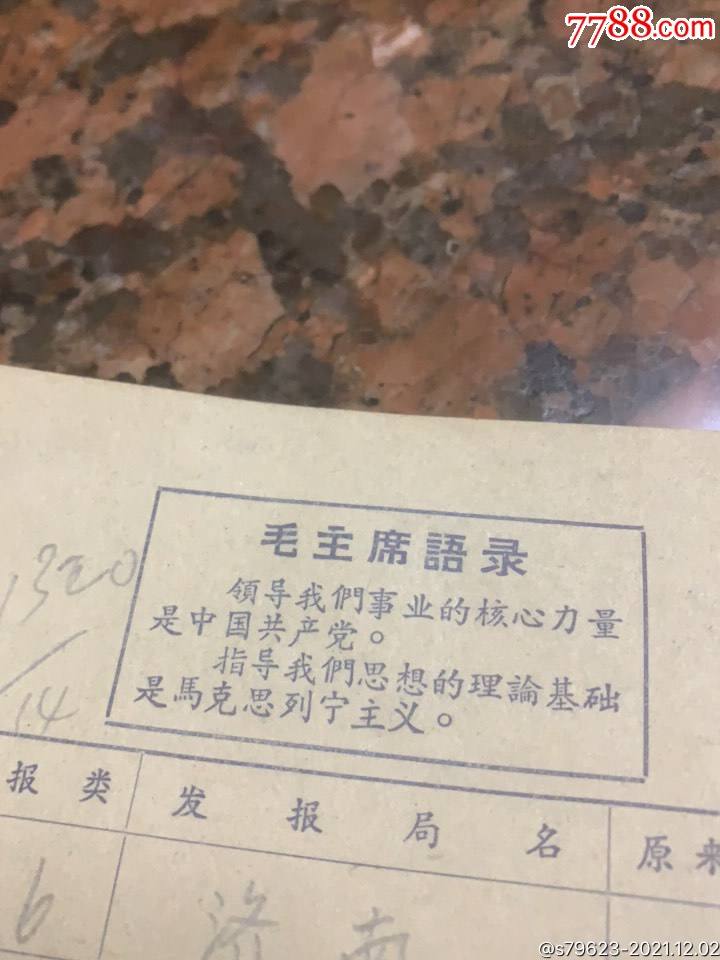 7788.com
毛主席語录
領导我們事业的核心力量
是中国共产党。
指导我們思想的理論基础
是馬克思列宁主义。
1320
14
报类 发报局名 原来
6 济南
@s79623-2021.12.02